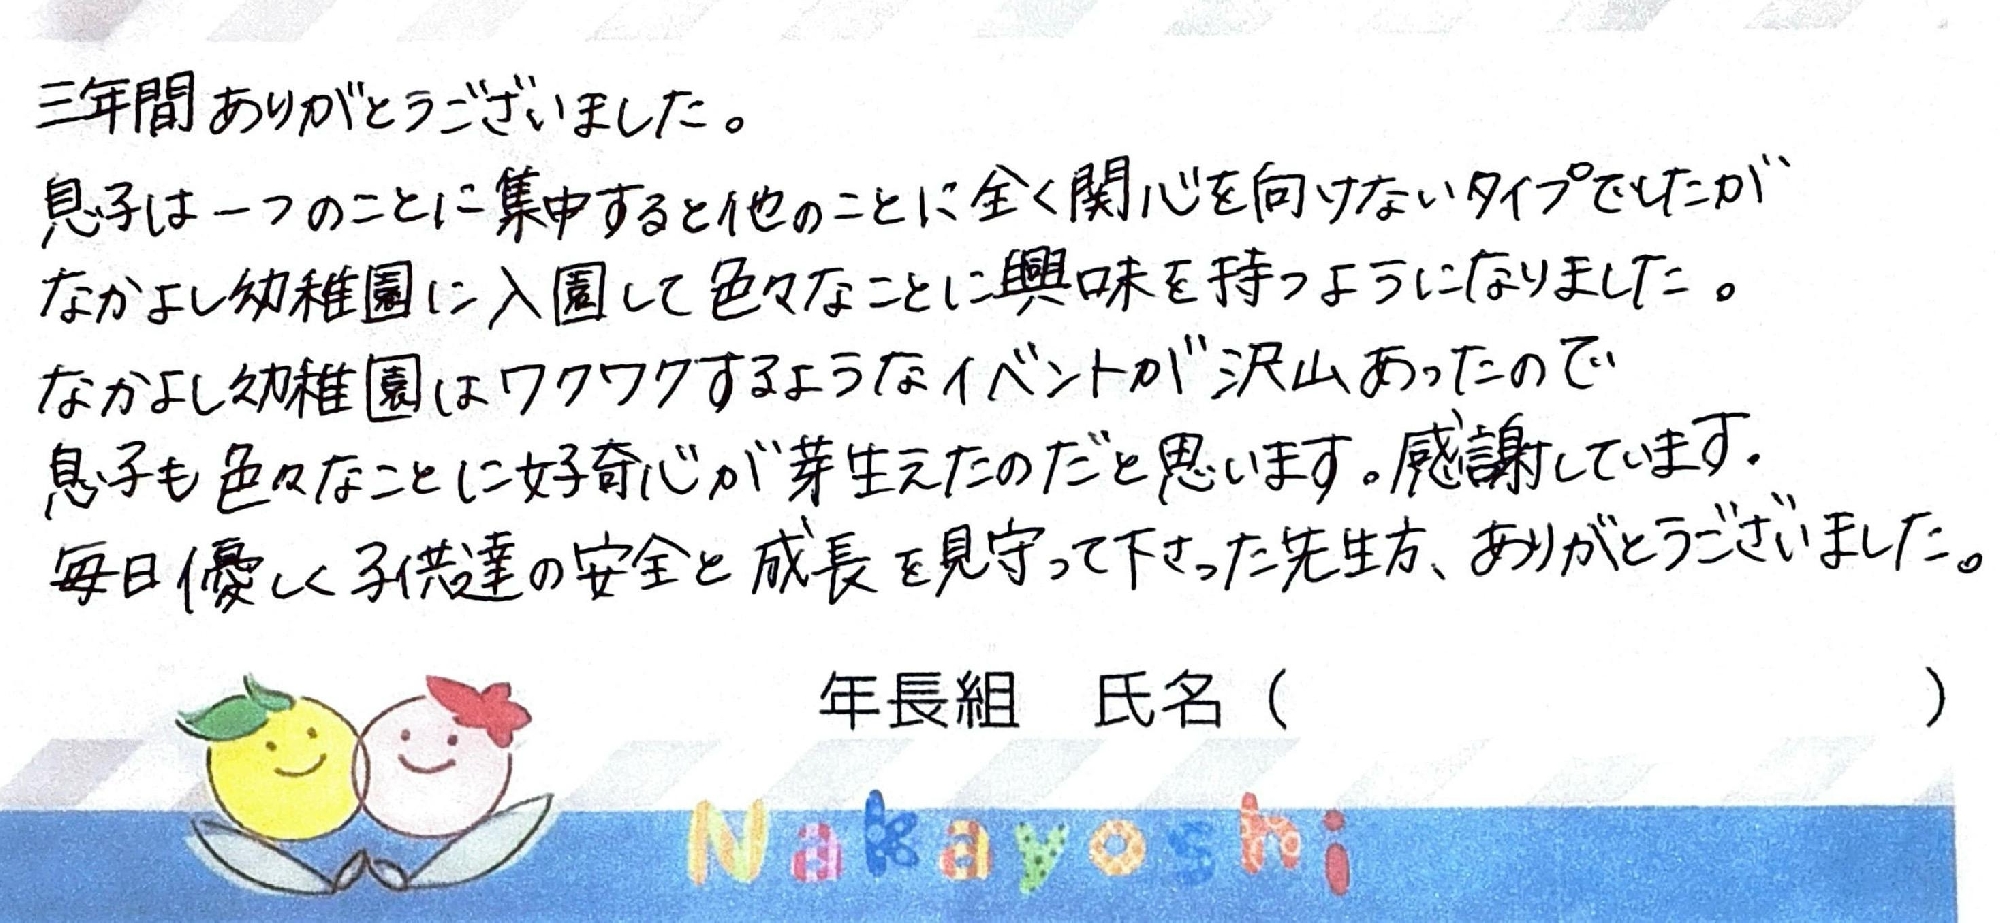 三年間ありがとうございました。
息子は一つのことに集中すると他のことに全く関心を向けないタイプでしたが
なかよし幼稚園に入園して色々なことに興味を持つようになりました。
なかよし幼稚園はワクワクするようなイベントが沢山あったので
息子も色々なことに好奇心が芽生えたのだと思います。感謝しています。
毎日優しく子供達の安全と成長を見守って下さった先生方、ありがとうございました。
年長組　氏名（　　　　　　　　　）
Nakayoshi